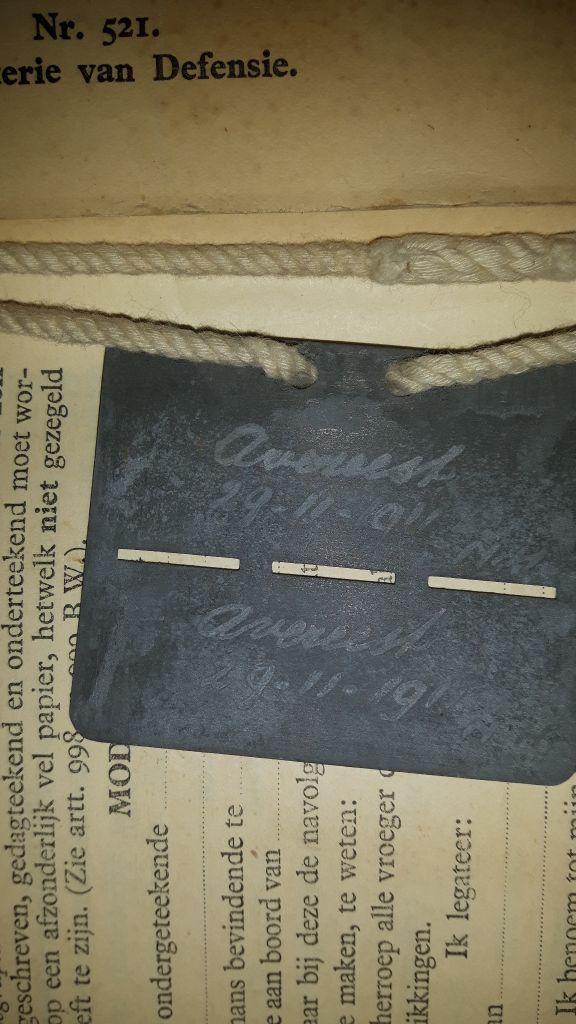 Nr. 521.
erie van Defensie.
Avereest
29-11-191
Avereest
29-11-191
geschreven, gedagteekend en onderteekend moet wor-
op een afzonderlijk vel papier, hetwelk niet gezegeld
eft te zijn. (Zie artt. 998 B.W.).
MOD
ondergeteekende
mans bevindende te
e aan boord van
aar bij deze de navolg
e maken, te weten:
herroep alle vroeger
ikkingen.
Ik legateer:
an
Ik benoem tot mijn